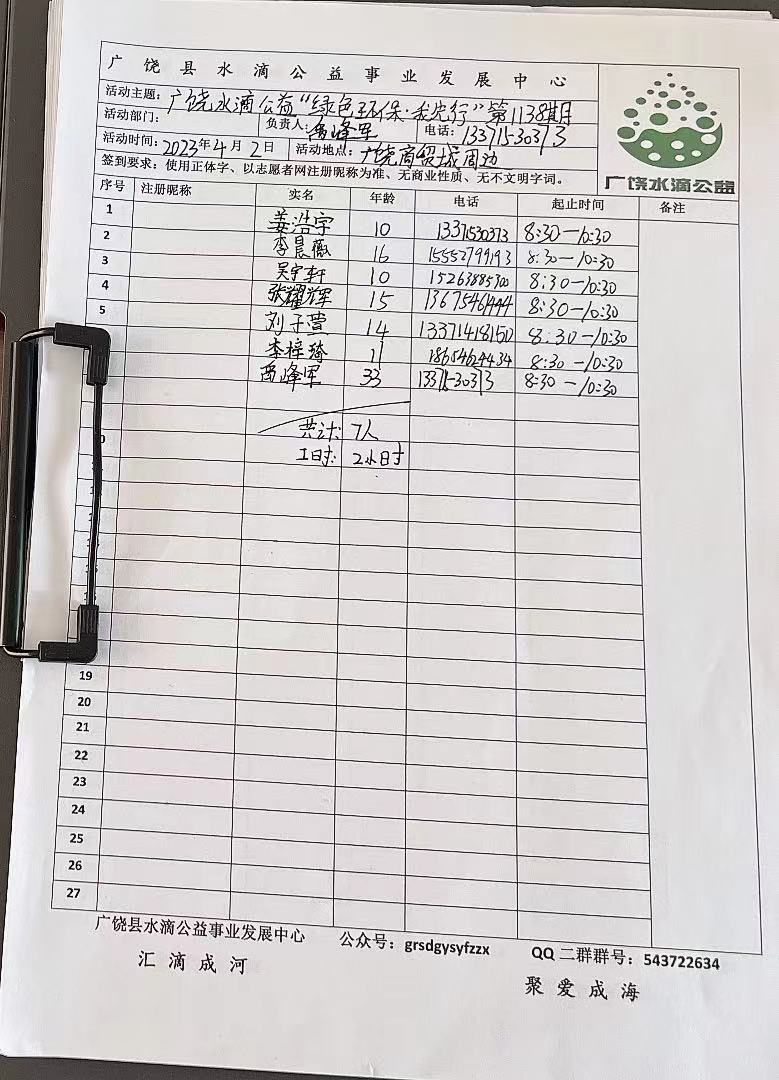 广饶县水滴公益事业发展中心
活动主题：广饶水滴公益“绿色环保·我先行”第1138期
活动部门： 负责人： 峰军 电话：13371530373
活动时间：2023年4月2日 活动地点：广饶商贸城周边
签到要求：使用正体字、以志愿者网注册昵称为准、无商业性质、无不文明字词。
广饶水滴公益
序号 注册昵称 实名 年龄 电话 起止时间 备注
1 姜浩宇 10 13371530373 8:30-10:30
2 李晨薇 16 15552799193 8:30-10:30
3 吴宇轩 10 15263885300 8:30-10:30
4 张耀辉 15 13675461444 8:30-10:30
5 刘子萱 14 13371418150 8:30-10:30
李梓琦 11 18654624434 8:30-10:30
峰军 33 13371530373 8:30-10:30
共计：7人
工时：2小时
19
20
21
22
23
24
25
26
27
广饶县水滴公益事业发展中心 公众号：grsdgysyfzzx QQ二群群号：543722634
汇滴成河 聚爱成海